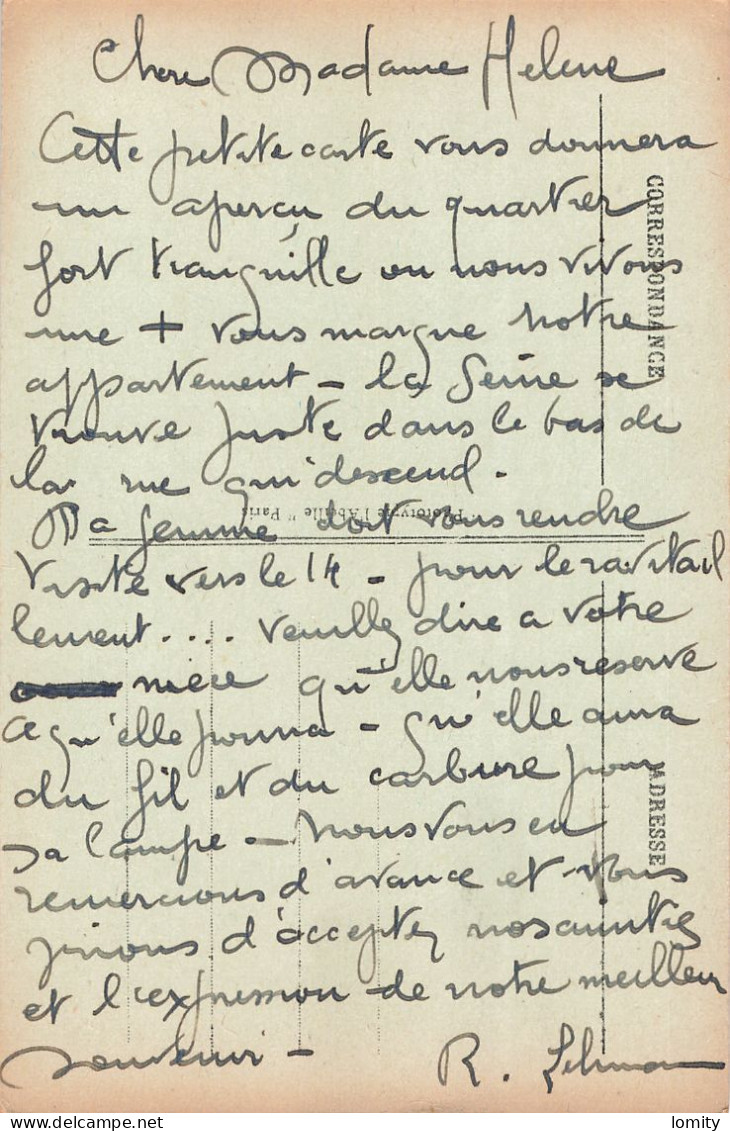 Chere Madame Helene
Cette petite carte vous donnera
un aperçu du quartier
fort tranquille ou nous vivons
une + vous marque notre
appartement – la Seine se
trouve juste dans le bas de
la rue qui descend.
Ma femme doit vous rendre
visite vers le 14 – pour le ravitail
lement.... veuillez dire a votre
niece qu'elle nous reserve
ce qu'elle pourra – qu'elle aura
du fil et du carbure pour
sa lampe – Nous vous en
remercions d'avance et vous
prions d'accepter nos amities
et l'expression de notre meilleur
souvenir –
R. Lehman
CORRESPONDANCE
ADRESSE
"Phototypie l'Abeille" Paris
lomity